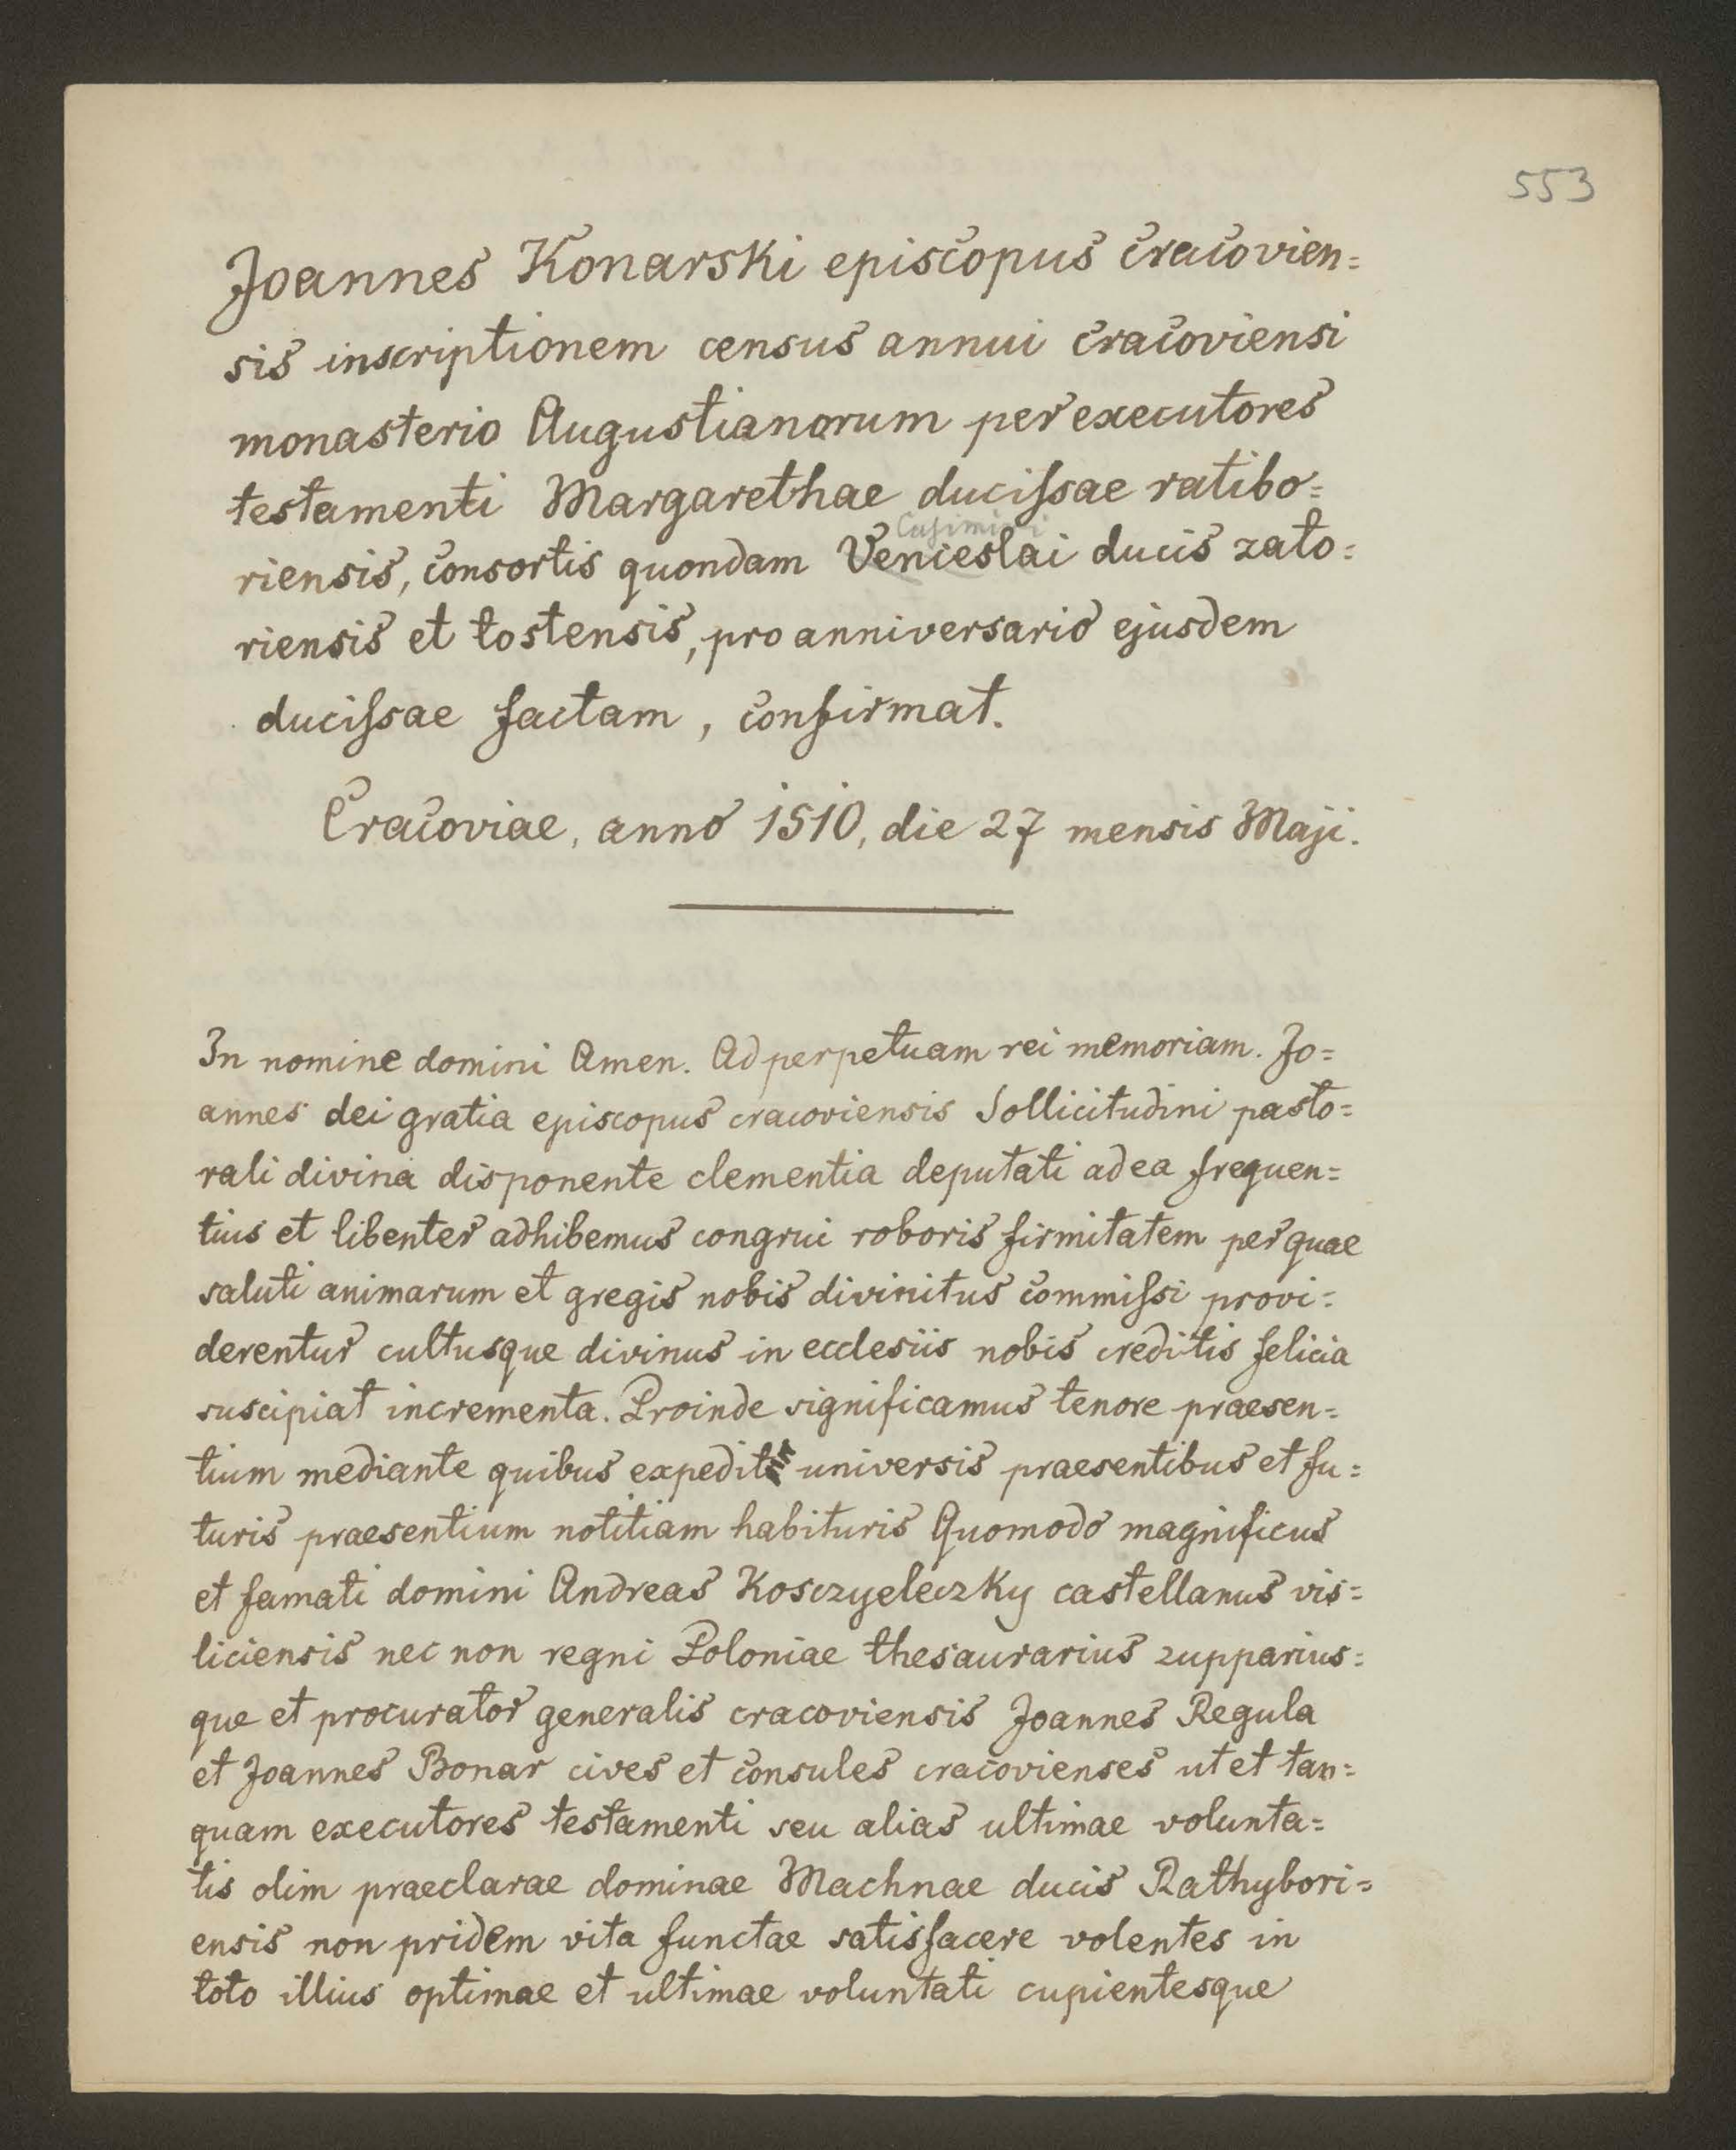 553
Joannes Konarski episcopus cracovien=
sis inscriptionem census annui cracoviensi
monasterio Augustianorum per executores
testamenti Margarethae ducissae ratibo=
Casimiri
riensis, consortis quondam Venceslai ducis zato=
riensis et tostensis, pro anniversario ejusdem
ducissae factam, confirmat.
Cracoviae, anno 1510, die 27 mensis Maji.
In nomine domini Amen. Ad perpetuam rei memoriam. Jo=
annes dei gratia episcopus cracoviensis Sollicitudini pasto=
rali divina disponente clementia deputati ad ea frequen=
tius et libenter adhibemus congrui roboris firmitatem per quae
saluti animarum et gregis nobis divinitus commissi provi=
derentur cultusque divinus in ecclesiis nobis creditis felicia
suscipiat incrementa. Proinde significamus tenore praesen=
tium mediante quibus expedit universis praesentibus et fu=
turis praesentium notitiam habituris Quomodo magnificus
et famati domini Andreas Kosczyeleczky castellanus vis=
liciensis nec non regni Poloniae thesaurarius zupparius=
que et procurator generalis cracoviensis Joannes Regula
et Joannes Bonar cives et consules cracovienses ut et tan=
quam executores testamenti seu alias ultimae volunta=
tis olim praeclarae dominae Machnae ducis Rathybori=
ensis non pridem vita functae satisfacere volentes in
toto illius optimae et ultimae voluntati cupientesque